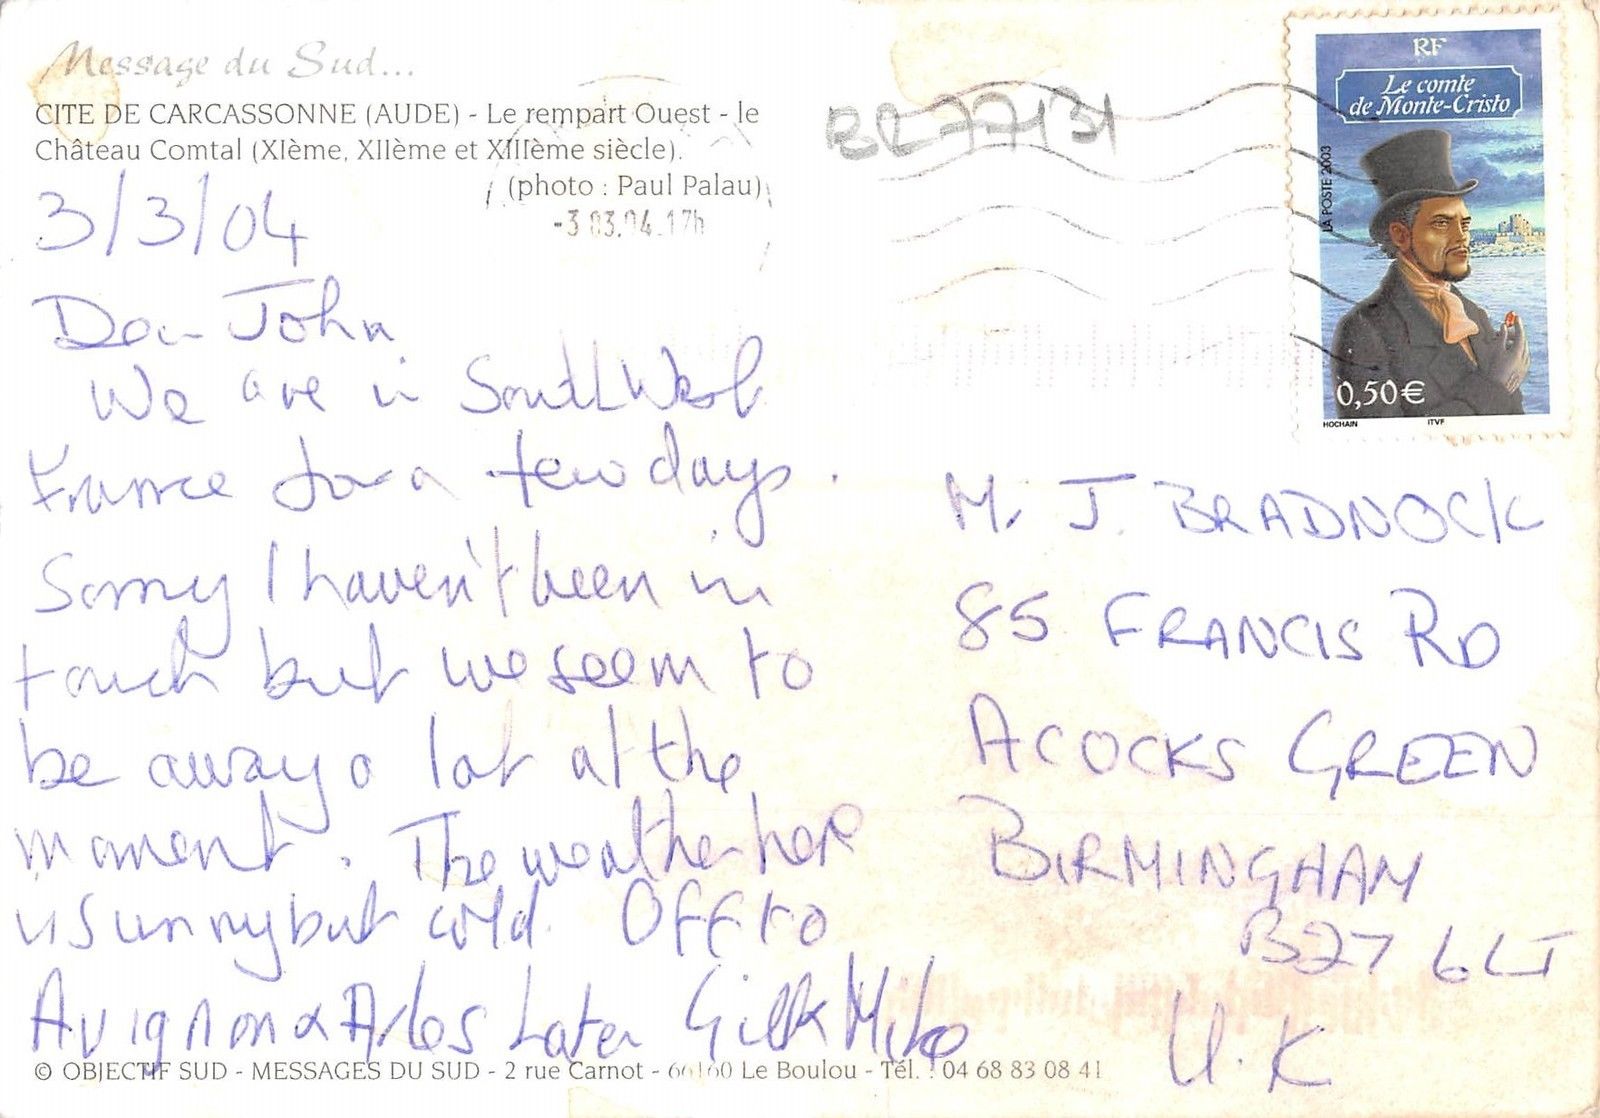 Message du Sud...
CITE DE CARCASSONNE (AUDE) - Le rempart Ouest - le
Château Comtal (XIème, XIIème et XIIIème siècle).
(photo : Paul Palau)
-3.03.04.17h
BR77131
RF
Le comte
de Monte-Cristo
LA POSTE 2003
0,50€
HOCHAIN
ITVF
3/3/04
Dear John
We are in South West
France for a few days.
Sorry I haven't been in
touch but we seem to
be away a lot at the
moment. The weather here
is sunny but cold. Off to
Avignon & Arles later Gill & Mike
M. J. BRADNOCK
85 FRANCIS RD
ACOCKS GREEN
BIRMINGHAM
B27 6LT
U.K
© OBJECTIF SUD - MESSAGES DU SUD - 2 rue Carnot - 66160 Le Boulou - Tél. : 04 68 83 08 41